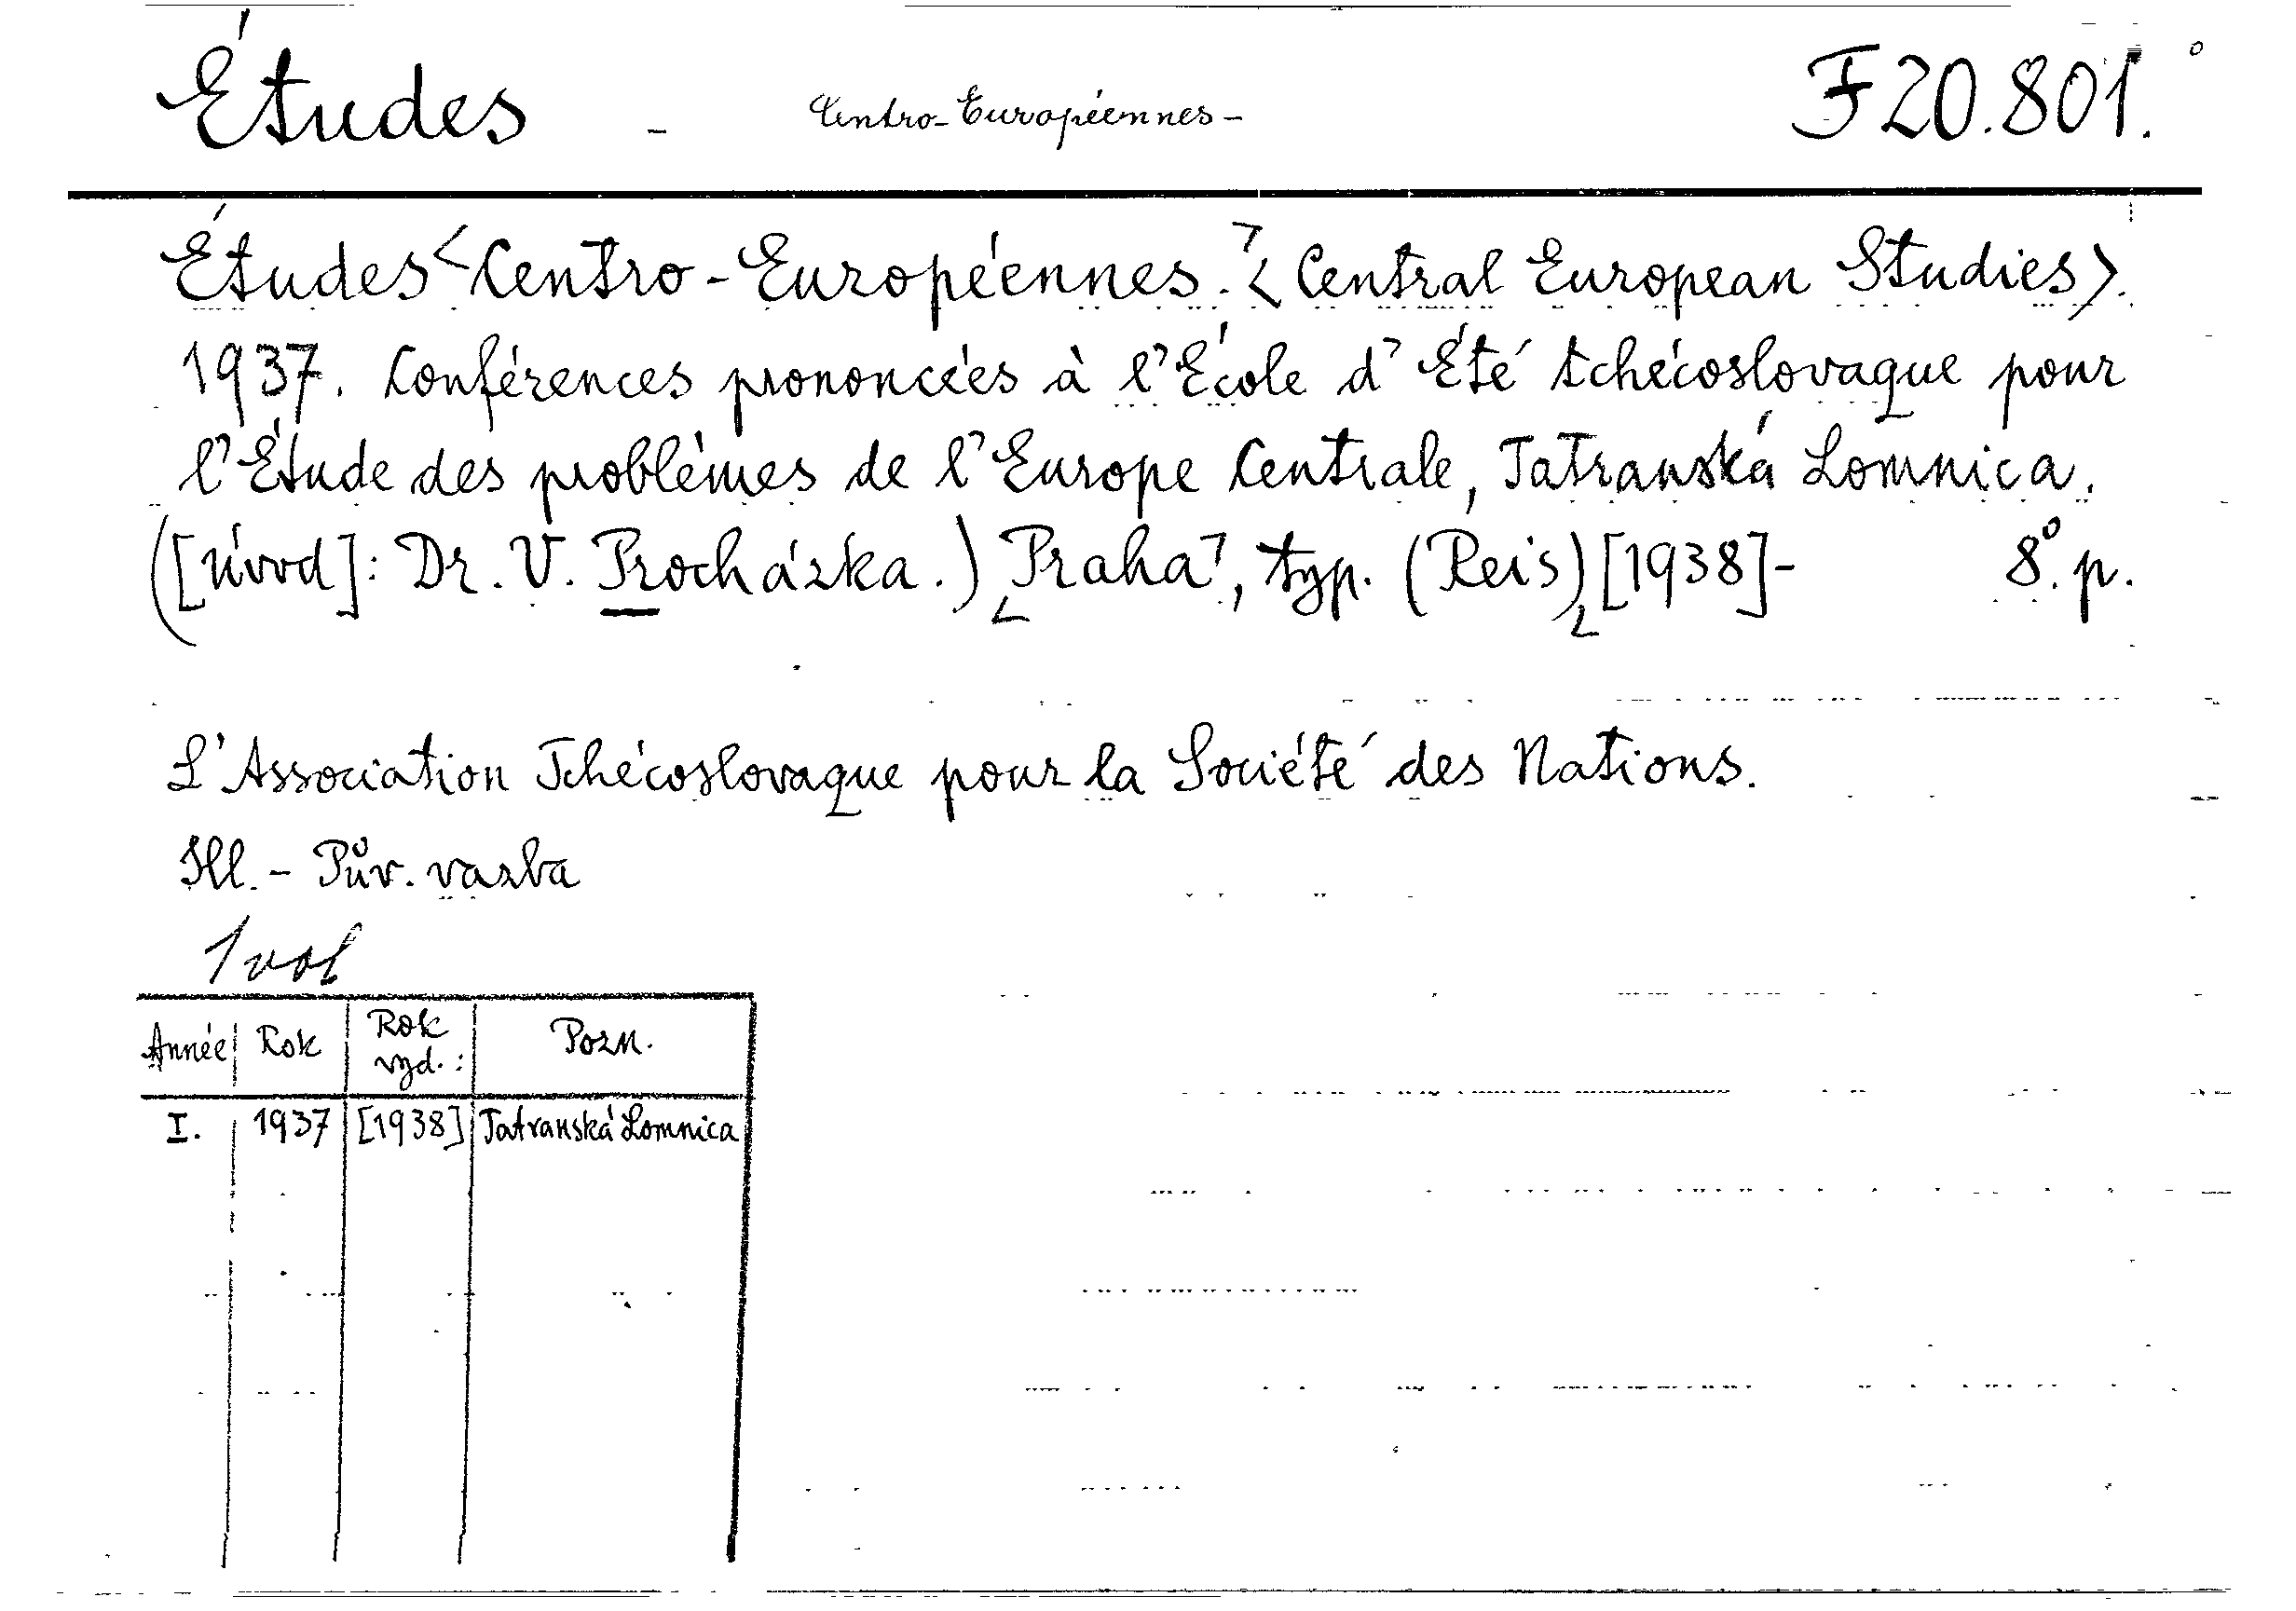 Études - Centro-Européennes - F 20.801.
Études <Centro-Européennes.> <Central European Studies>.
1937. Conférences prononcées à l'École d'Été tchécoslovaque pour
l'Étude des problèmes de l'Europe Centrale, Tatranská Lomnica.
([úvod]: Dr. V. Procházka.) Praha, typ. (Reis) [1938]- 8°. p.
L'Association Tchécoslovaque pour la Société des Nations.
Ill. - Pův. vazba
1 vol
Année Rok Rok vyd.: Pozn.
I. 1937 [1938] Tatranská Lomnica